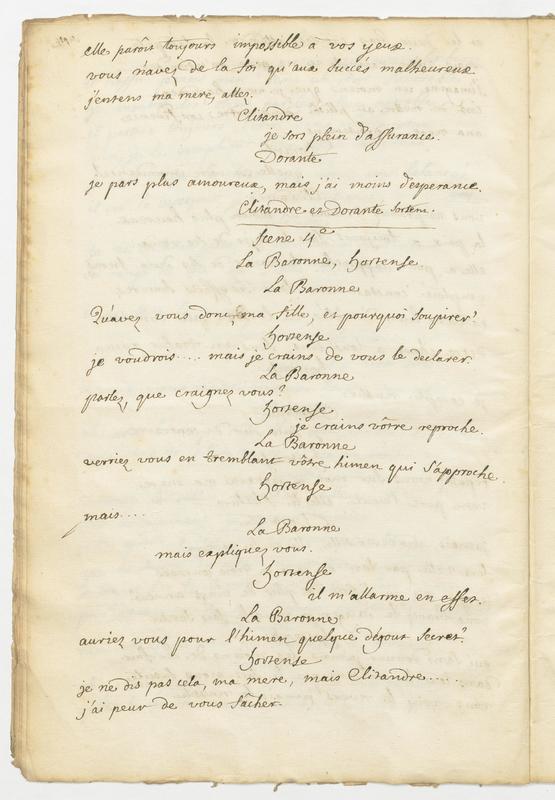 elle parôit toujours impossible à vos yeux.
vous n'avez de la foi qu'aux succés malheureux
j'entens ma mere, allez.
Clitandre
je sors plein d'assurance.
Dorante
je pars plus amoureux, mais j'ai moins d'esperance.
Clitandre et Dorante sortent.
Scene 4e
La Baronne, Hortense
La Baronne
Qu'avez vous donc, ma fille, et pourquoi soupirer?
Hortense
je voudrois.... mais je crains de vous le declarer.
La Baronne
parlez, que craignez vous?
Hortense
je crains vôtre reproche.
La Baronne
verriez vous en tremblant vôtre himen qui s'approche.
Hortense
mais....
La Baronne
mais expliquez vous.
Hortense
il m'allarme en effet.
La Baronne
auriez vous pour l'himen quelque dégout secret?
Hortense
je ne dis pas cela, ma mere, mais Clitandre.....
j'ai peur de vous fâcher.